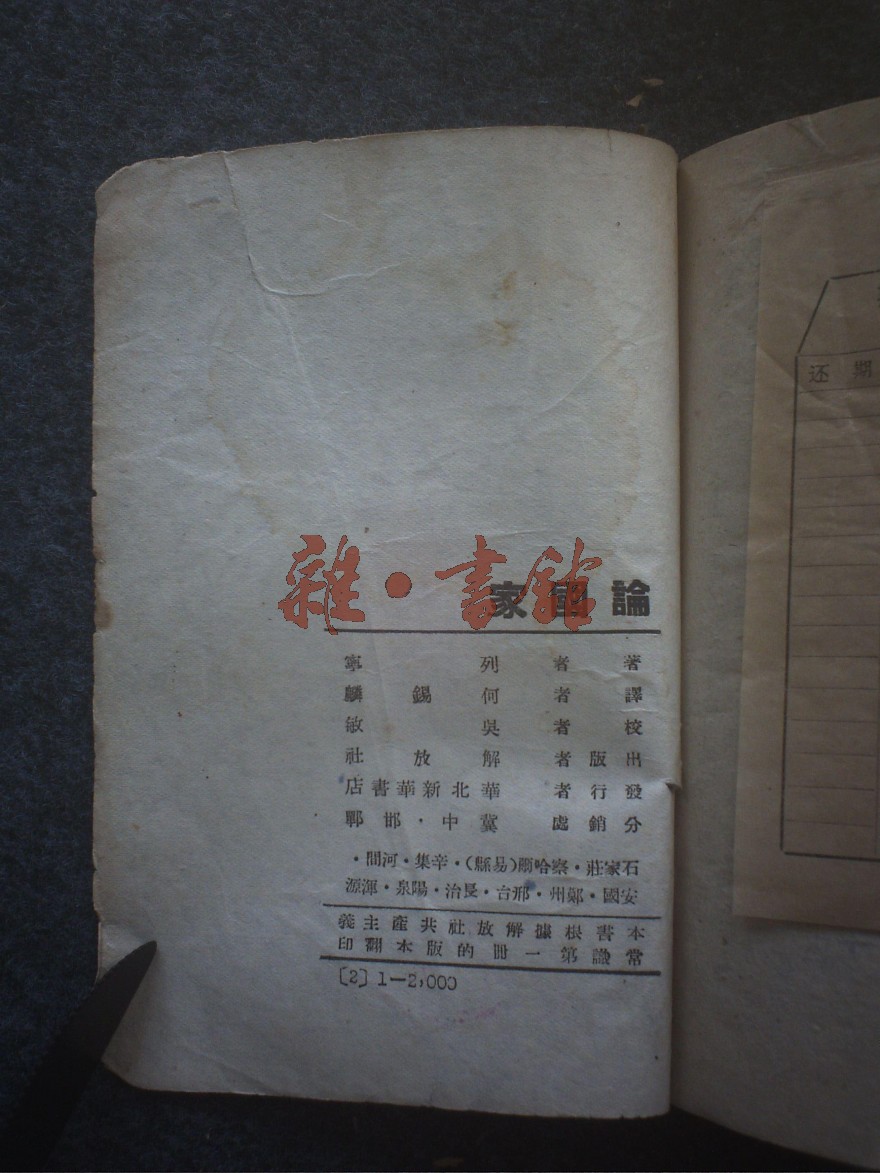 雜·書館
論國家
著者 列寧
譯者 何錫麟
校者 吳敏
出版者 解放社
發行者 華北新華書店
分銷處 冀中·邯鄲
石家莊·察哈爾(易縣)·辛集·河間·
安國·鄭州·邢台·長治·陽泉·渾源
本書根據解放社共產主義
常識第一冊的版本翻印
〔2〕1—2,000
还期